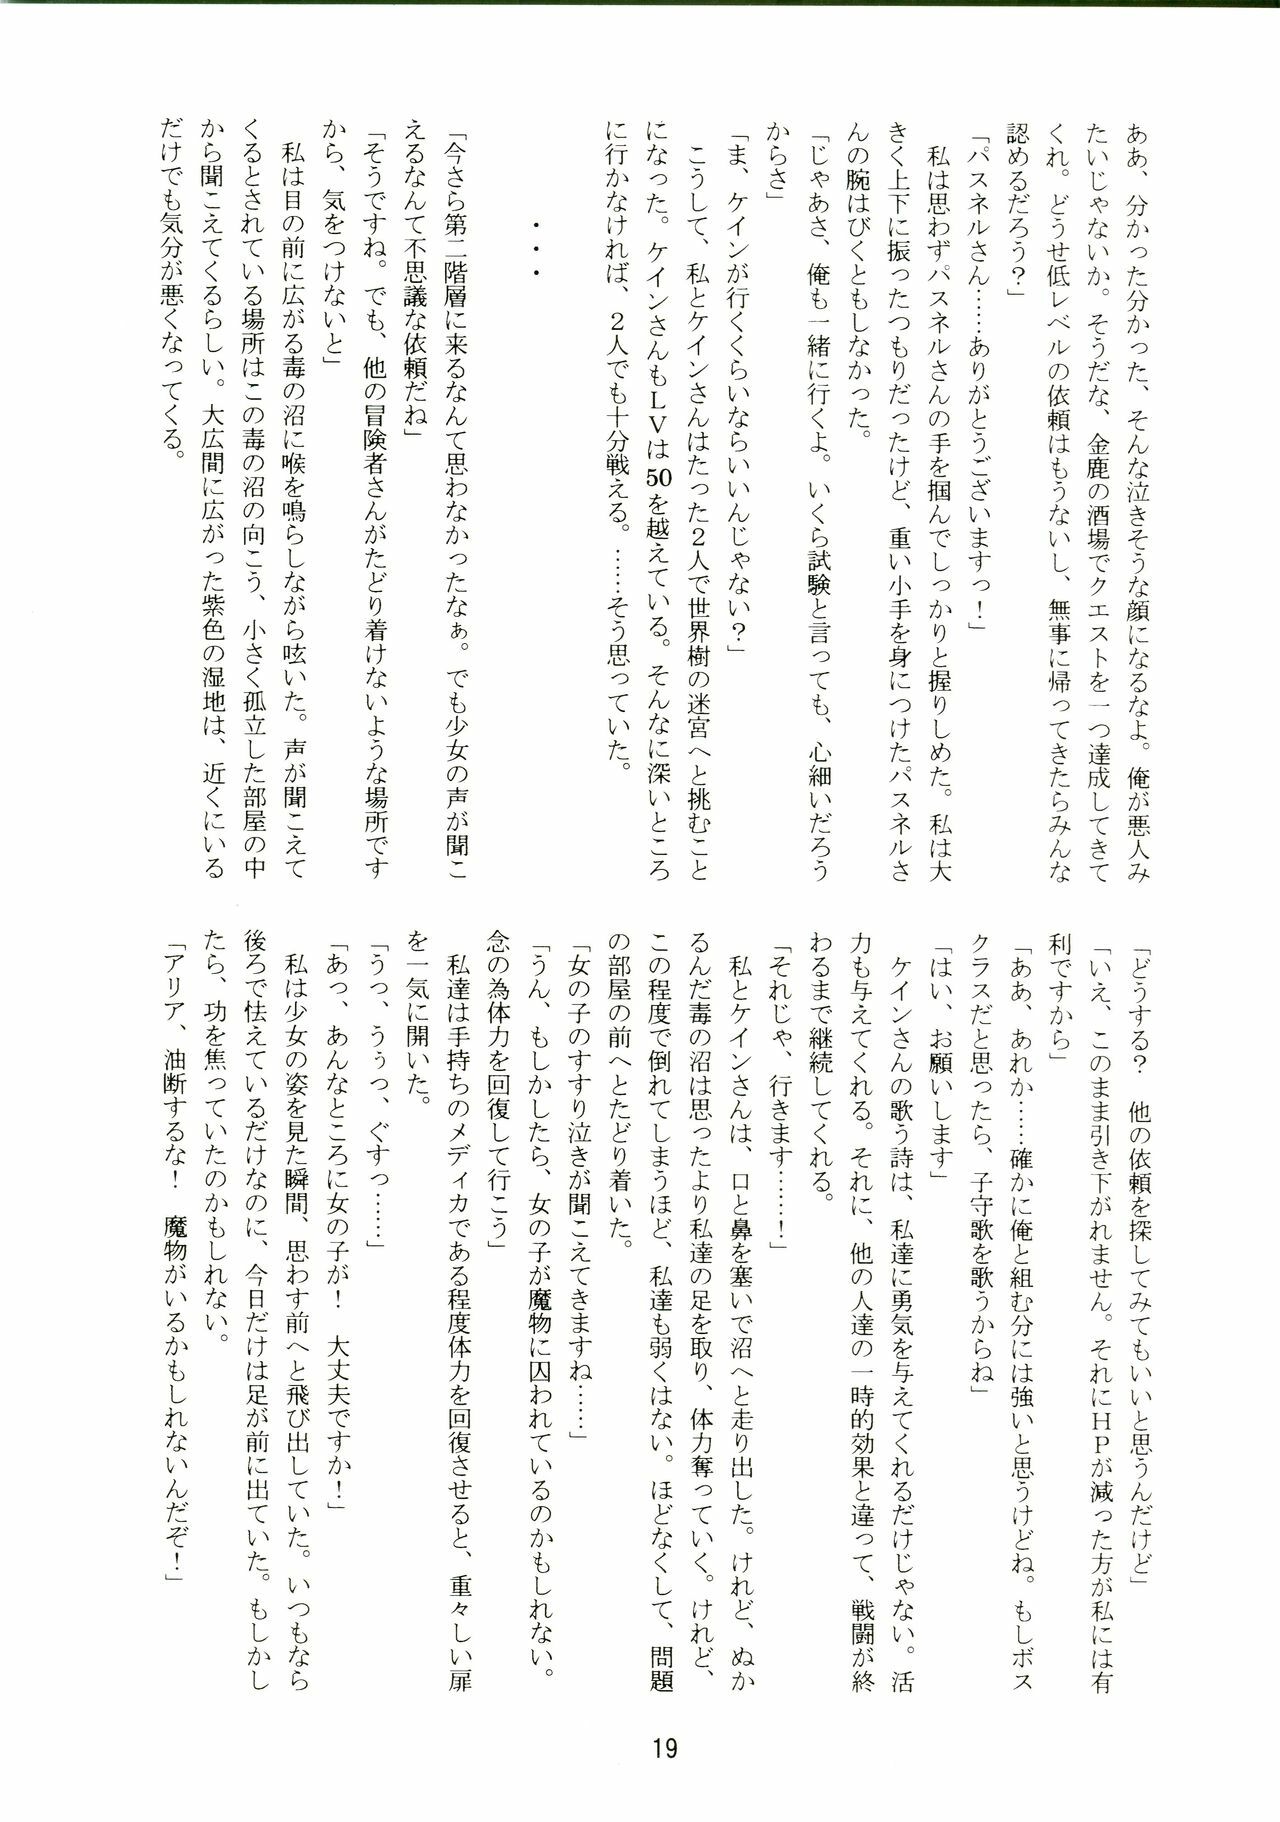 ああ、分かった分かった、そんな泣きそうな顔になるなよ。俺が悪人み
たいじゃないか。そうだな、金鹿の酒場でクエストを一つ達成してきて
くれ。どうせ低レベルの依頼はもうないし、無事に帰ってきたらみんな
認めるだろう？」
「パスネルさん……ありがとうございますっ！」
　私は思わずパスネルさんの手を掴んでしっかりと握りしめた。私は大
きく上下に振ったつもりだったけど、重い小手を身につけたパスネルさ
んの腕はびくともしなかった。
「じゃあさ、俺も一緒に行くよ。いくら試験と言っても、心細いだろう
からさ」
「ま、ケインが行くくらいならいいんじゃない？」
　こうして、私とケインさんはたった２人で世界樹の迷宮へと挑むこと
になった。ケインさんもＬＶは50を越えている。そんなに深いところ
に行かなければ、２人でも十分戦える。……そう思っていた。
・・・
「今さら第二階層に来るなんて思わなかったなぁ。でも少女の声が聞こ
えるなんて不思議な依頼だね」
「そうですね。でも、他の冒険者さんがたどり着けないような場所です
から、気をつけないと」
　私は目の前に広がる毒の沼に喉を鳴らしながら呟いた。声が聞こえて
くるとされている場所はこの毒の沼の向こう、小さく孤立した部屋の中
から聞こえてくるらしい。大広間に広がった紫色の湿地は、近くにいる
だけでも気分が悪くなってくる。
「どうする？　他の依頼を探してみてもいいと思うんだけど」
「いえ、このまま引き下がれません。それにＨＰが減った方が私には有
利ですから」
「ああ、あれか……確かに俺と組む分には強いと思うけどね。もしボス
クラスだと思ったら、子守歌を歌うからね」
「はい、お願いします」
　ケインさんの歌う詩は、私達に勇気を与えてくれるだけじゃない。活
力も与えてくれる。それに、他の人達の一時的効果と違って、戦闘が終
わるまで継続してくれる。
「それじゃ、行きます……！」
　私とケインさんは、口と鼻を塞いで沼へと走り出した。けれど、ぬか
るんだ毒の沼は思ったより私達の足を取り、体力奪っていく。けれど、
この程度で倒れてしまうほど、私達も弱くはない。ほどなくして、問題
の部屋の前へとたどり着いた。
「女の子のすすり泣きが聞こえてきますね……」
「うん、もしかしたら、女の子が魔物に囚われているのかもしれない。
念の為体力を回復して行こう」
　私達は手持ちのメディカである程度体力を回復させると、重々しい扉
を一気に開いた。
「うっ、うぅっ、ぐすっ……」
「あっ、あんなところに女の子が！　大丈夫ですか！」
　私は少女の姿を見た瞬間、思わす前へと飛び出していた。いつもなら
後ろで怯えているだけなのに、今日だけは足が前に出ていた。もしかし
たら、功を焦っていたのかもしれない。
「アリア、油断するな！　魔物がいるかもしれないんだぞ！」
19